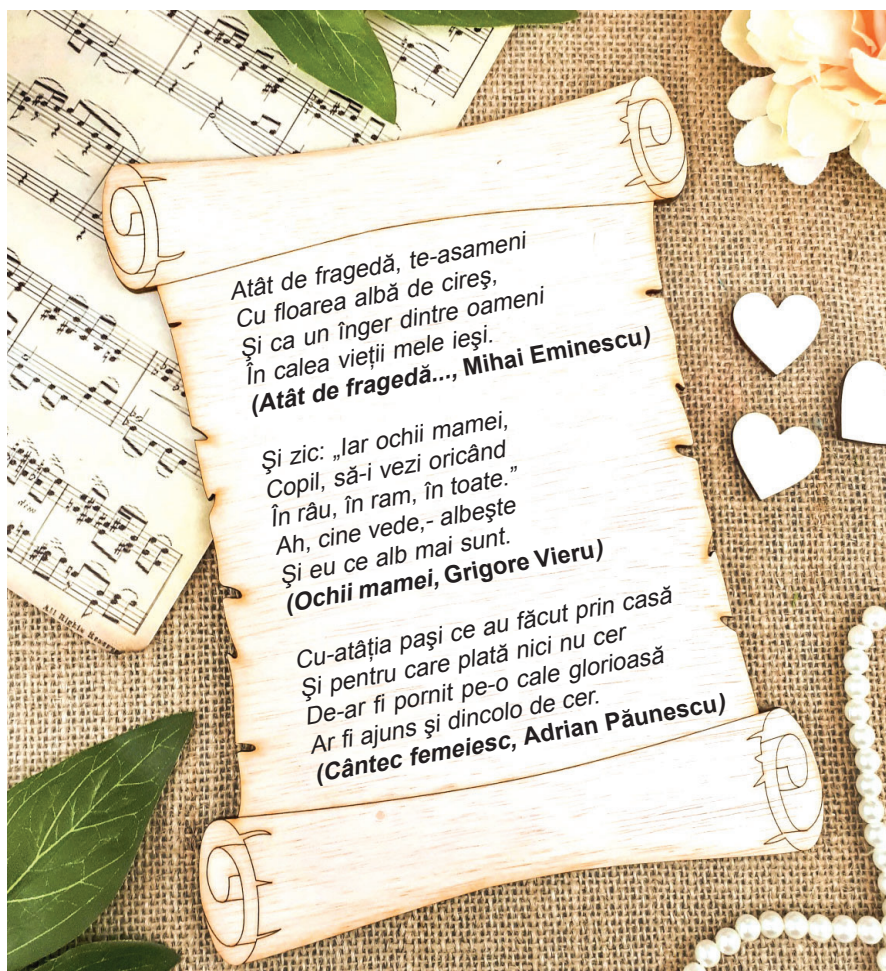 Atât de fragedă, te-asameni
Cu floarea albă de cireş,
Şi ca un înger dintre oameni
În calea vieţii mele ieşi.
(Atât de fragedă..., Mihai Eminescu)
Şi zic: „Iar ochii mamei,
Copil, să-i vezi oricând
În râu, în ram, în toate.”
Ah, cine vede,- albeşte
Şi eu ce alb mai sunt.
(Ochii mamei, Grigore Vieru)
Cu-atâţia paşi ce au făcut prin casă
Şi pentru care plată nici nu cer
De-ar fi pornit pe-o cale glorioasă
Ar fi ajuns şi dincolo de cer.
(Cântec femeiesc, Adrian Păunescu)